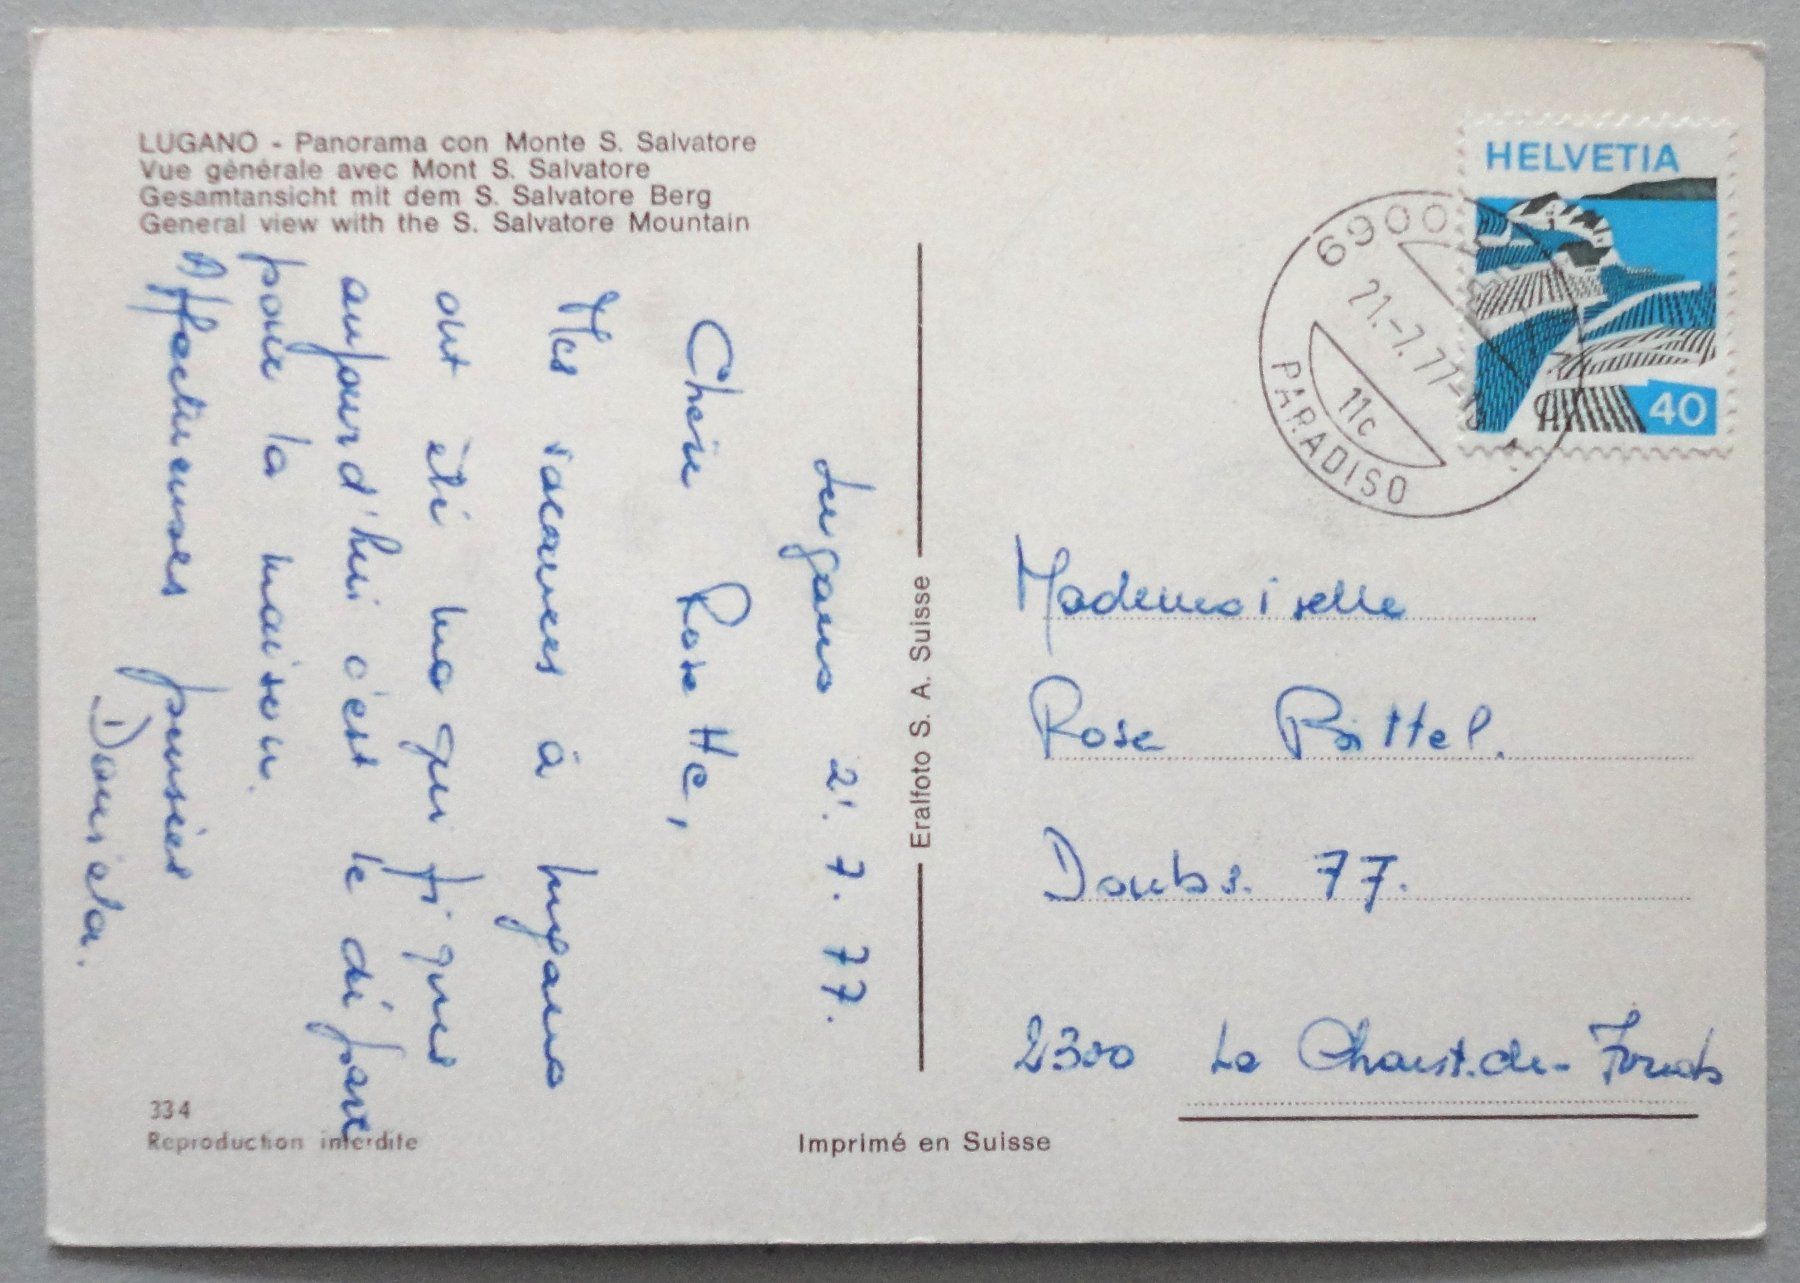 LUGANO - Panorama con Monte S. Salvatore
Vue générale avec Mont S. Salvatore
Gesamtansicht mit dem S. Salvatore Berg
General view with the S. Salvatore Mountain
Lugano 21.7.77.
Chère Rose Hé,
Mes vacances à Lugano
ont été magnifiques
aujourd'hui c'est le départ
pour la maison.
Affectueuses pensées
Daniela.
334
Reproduction interdite
Eralfoto S. A. Suisse
Imprimé en Suisse
HELVETIA
40
6900
21.-7.77
11c
PARADISO
Mademoiselle
Rose Bittel.
Doubs. 77.
2300 La Chaux-de-Fonds